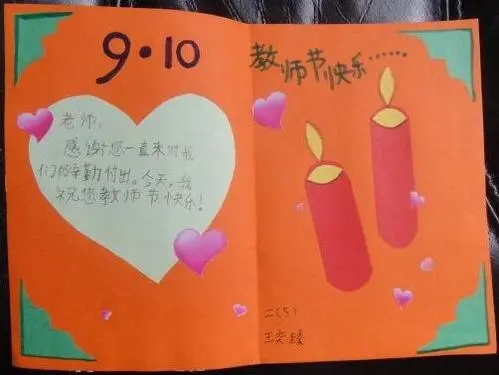 9·10
老师,
感谢您一直来对我
们的辛勤付出。今天,我
祝您教师节快乐!
教师节快乐……
二(5)
王奕